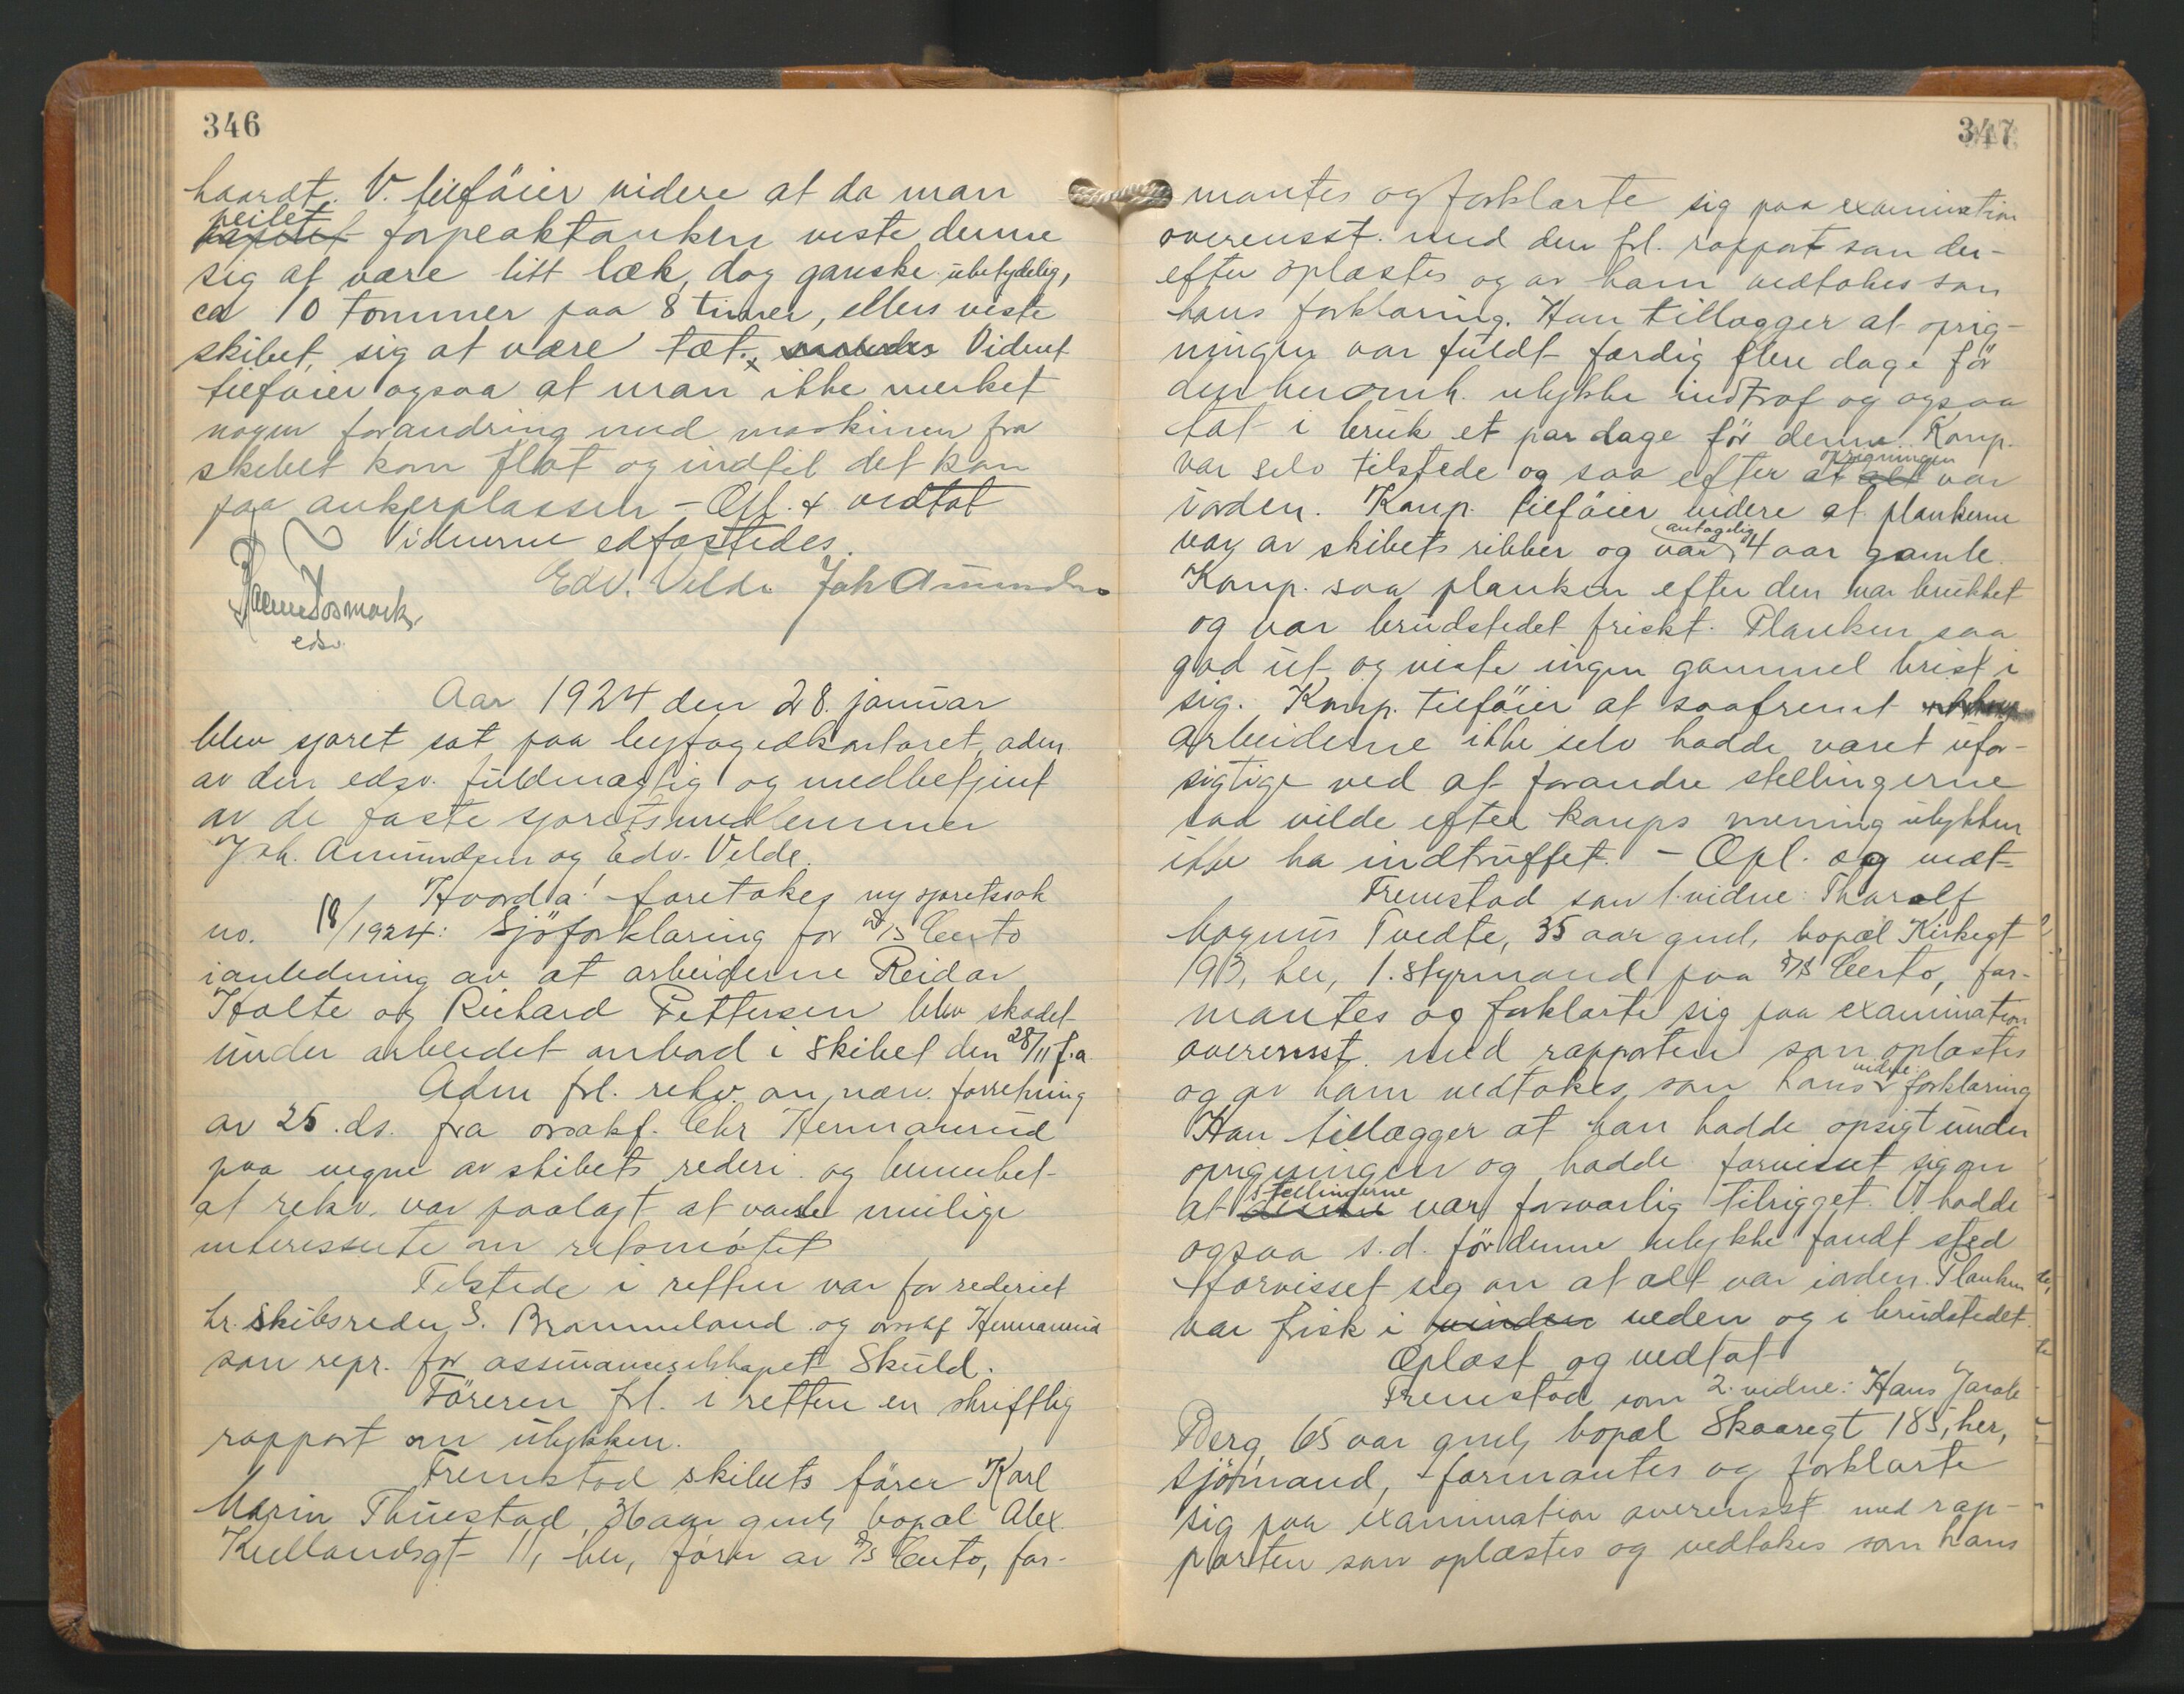 346
haardt. V. tilföier videre at da man
peilet
forpeaktanken viste denne
sig at være litt læk, dog ganske ubetydelig,
ca 10 tommer paa 8 timer, ellers viste
skibet sig at være tæt. Vidnet
tilföier ogsaa at man ikke merket
nogen forandring med maskinen fra
skibet kom flot og indtil det kom
paa ankerplassen – Opl. & vedtat
Vidnerne edfæstedes.
Edv. Velde Joh Amundsen
edsv.
Aar 1924 den 28. januar
blev sjøret sat paa byfogedkontoret, adm.
av den edsv. fuldmægtig og medbetjent
av de faste sjøretsmedlemmer
Joh. Amundsen og Edv. Velde.
Hvorda! foretokes ny sjøretssak
no. 18/1924: Sjöforklaring for D/S Certo
i anledning av at arbeiderne Reidar
Holte og Richard Pettersen blev skadet
under arbeidet ombord i skibet den 28/11 f.a.
Adm frl. rekv. om nærv. forretning
av 25. ds. fra ovsakf. Chr Hermanrud
paa vegne av skibets rederi og bemerket
at rekv. var paalagt at varsle mulige
interesserte om retsmötet
Tilstede i retten var for rederiet
hr. skibsreder S. Brommeland og ovsakf Hermanrud
som repr. for assuranceselskapet Skuld.
Föreren frl. i retten en skriftlig
rapport om ulykken.
Fremstod skibets förer Karl
Marin Thuestad, 36 aar gml, bopæl Alex
Kiellandsgt 11, her, förer av D/S Certo, for-
347
mantes og forklarte sig paa examination
overensst. med den frl. rapport som der-
efter oplæstes og av ham vedtokes som
hans forklaring. Han tillægger at oprig-
ningen var fuldt færdig flere dage för
den heromh. ulykke indtraf og ogsaa
tat i bruk et par dage för denne. Komp.
oprigningen
var selv tilstede og saa efter at alt var
iorden. Komp. tilföier videre at plankerne
antagelig
var av skibets ribber og var 4 aar gamle.
Komp. saa planken efter den var brukket
og var brudstedet friskt. Planken saa
god ut og viste ingen gammel brist i
sig. Komp. tilföier at saafremt
arbeiderne ikke selv hadde været ufor-
sigtige ved at forandre stellingerne
saa vilde efter komps mening ulykken
ikke ha indtruffet. – Opl. og vedt.
Fremstod som 1. vidne: Tharalf
Magnus Tvedte, 35 aar gml, bopæl Kirkegt
193, her, 1. styrmand paa D/S Certo, for-
mantes og forklarte sig paa examination
overensst. med rapporten som oplæstes
vidne
og av ham vedtokes som hans forklaring
Han tillægger at han hadde opsigt under
oprigningen og hadde forvisset sig om
stellingerne
at denne var forsvarlig tilrigget. V. hadde
ogsaa s.d. för denne ulykke fandt sted
forvisset sig om at alt var iorden. Planken
var frisk i veden og i brudstedet.
Oplæst og vedtat
Fremstod som 2. vidne: Hans Jacob
Berg, 65 aar gml, bopæl Skaaregt 185, her,
sjömand, formantes og forklarte
sig paa examination overensst med rap-
porten som oplæstes og vedtokes som hans